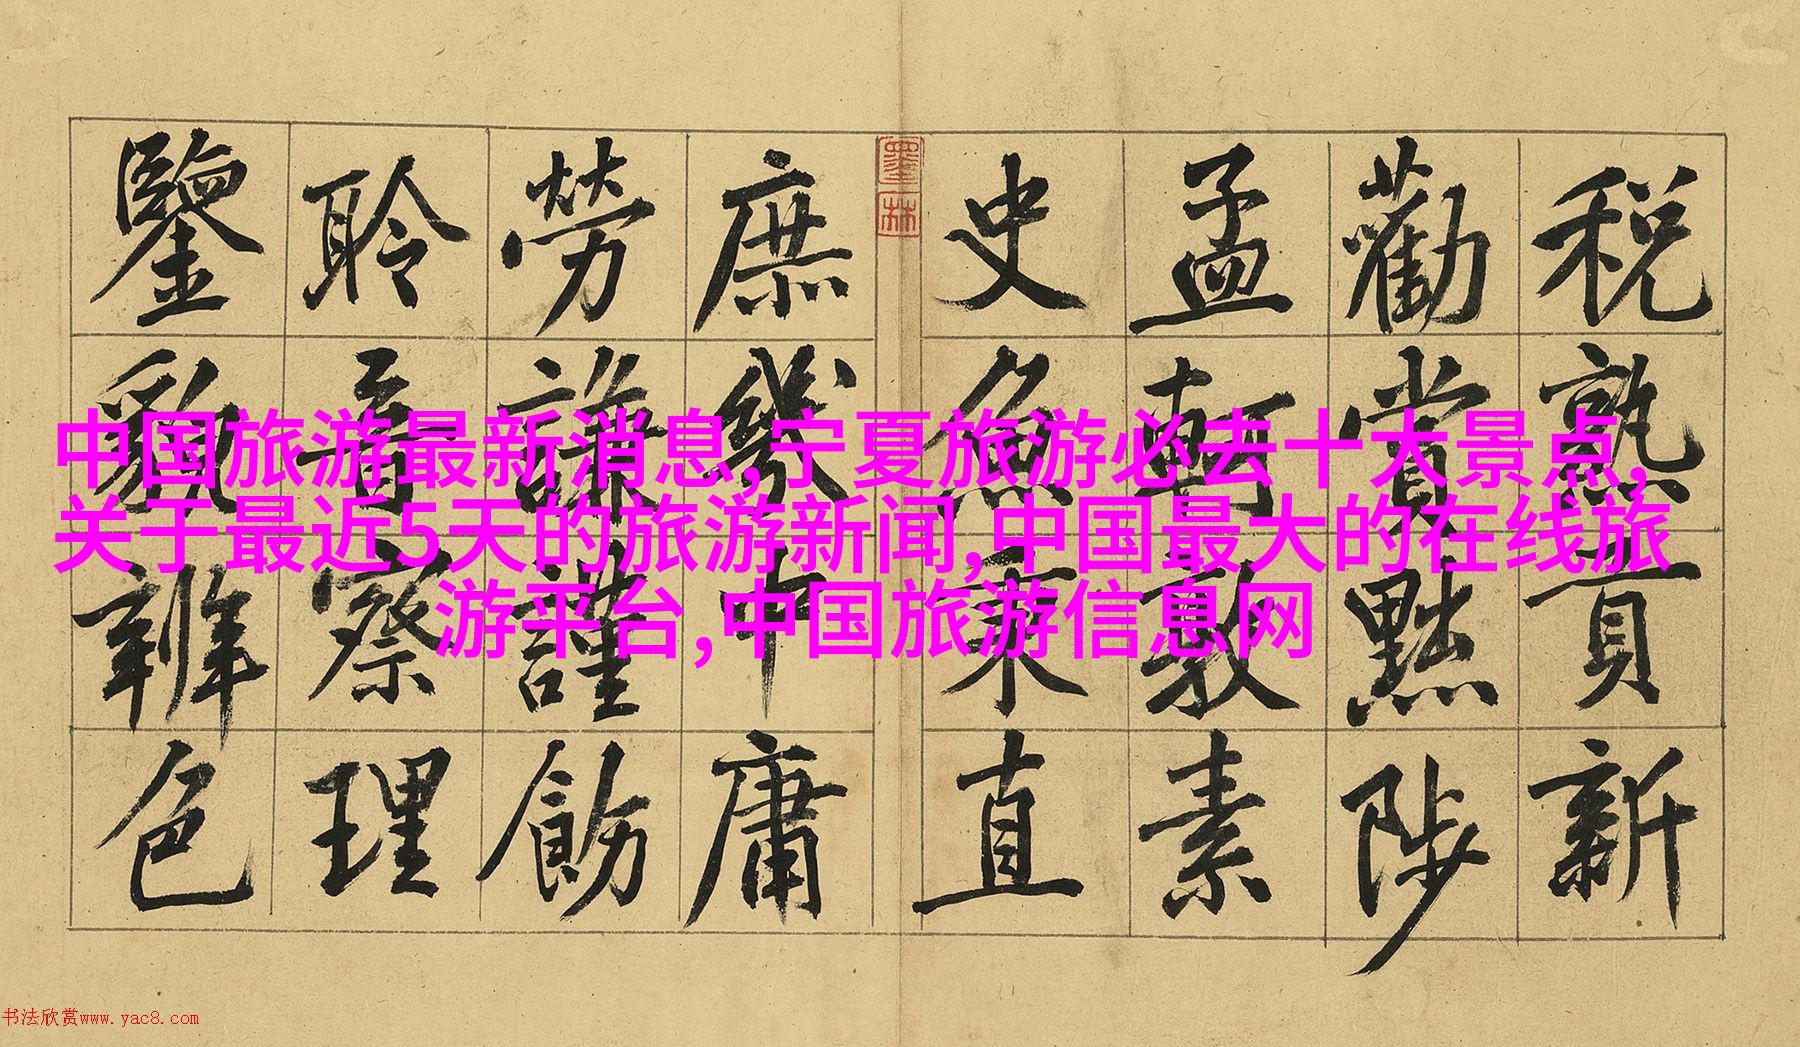 税熟貢新
勸賞黜陟
孟軻敦素
史魚秉直
墨林
庶幾中庸
勞謙謹飭
聆音察理
鑒貌辨色
中国旅游最新消息,宁夏旅游必去十大景点,
关于最近5天的旅游新闻,中国最大的在线旅
游平台,中国旅游信息网
书法欣赏www.yac8.com